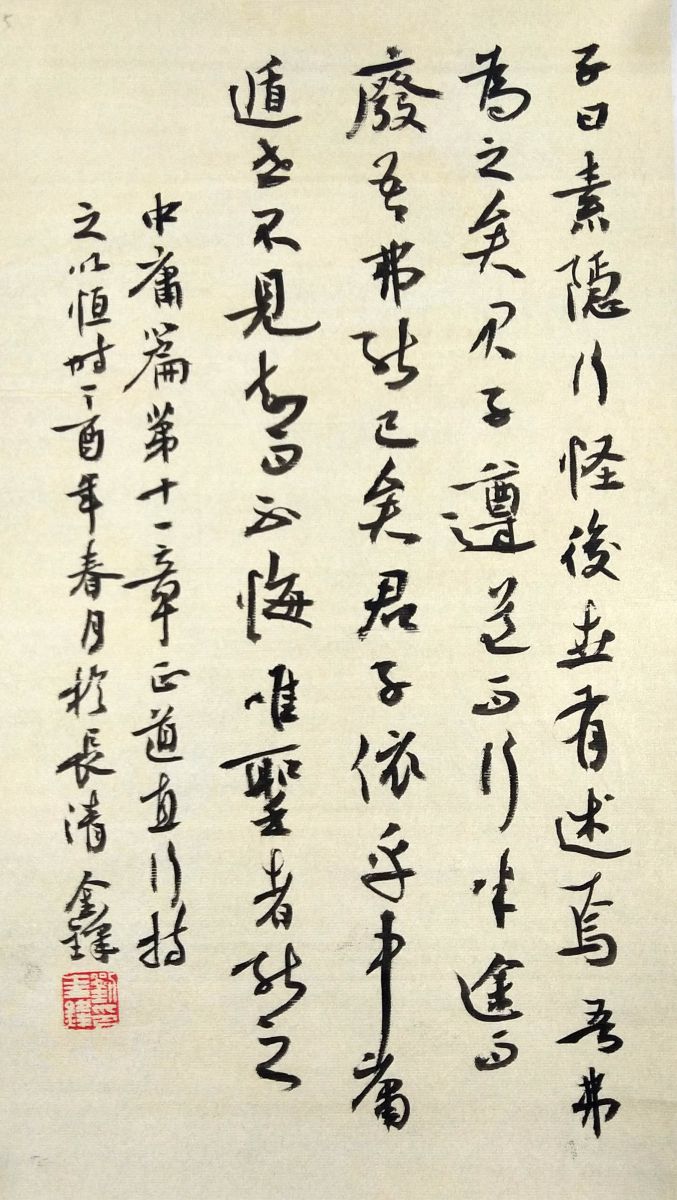 子曰素隱行怪後世有述焉吾弗
為之矣君子遵道而行半途而
廢吾弗能已矣君子依乎中庸
遁世不見知而不悔唯聖者能之
中庸篇第十一章正道直行持
之以恒時丁酉年春月於長清金鐸
劉印金鐸